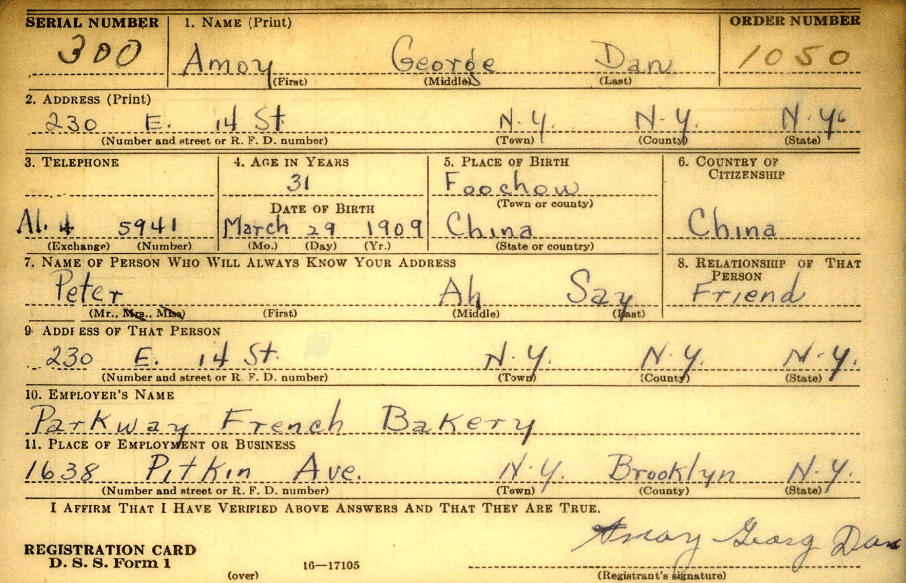 SERIAL NUMBER 1. NAME (Print) ORDER NUMBER
300 Amoy George Dan 1050
(First) (Middle) (Last)
2. ADDRESS (Print)
230 E. 14 St. N.Y. N.Y. N.Y.
(Number and street or R. F. D. number) (Town) (County) (State)
3. TELEPHONE 4. AGE IN YEARS 5. PLACE OF BIRTH 6. COUNTRY OF CITIZENSHIP
31 Foochow
DATE OF BIRTH (Town or county)
Al. 4 5941 March 29 1909 China China
(Exchange) (Number) (Mo.) (Day) (Yr.) (State or country)
7. NAME OF PERSON WHO WILL ALWAYS KNOW YOUR ADDRESS 8. RELATIONSHIP OF THAT PERSON
Peter Ah Say Friend
(Mr., Mrs., Miss) (First) (Middle) (Last)
9 ADDRESS OF THAT PERSON
230 E. 14 St. N.Y. N.Y. N.Y.
(Number and street or R. F. D. number) (Town) (County) (State)
10. EMPLOYER'S NAME
Parkway French Bakery
11. PLACE OF EMPLOYMENT OR BUSINESS
1638 Pitkin Ave. N.Y. Brooklyn N.Y.
(Number and street or R. F. D. number) (Town) (County) (State)
I AFFIRM THAT I HAVE VERIFIED ABOVE ANSWERS AND THAT THEY ARE TRUE.
Amoy Georg Dan
REGISTRATION CARD
D. S. S. Form 1
(over) 16-17105 (Registrant's signature)